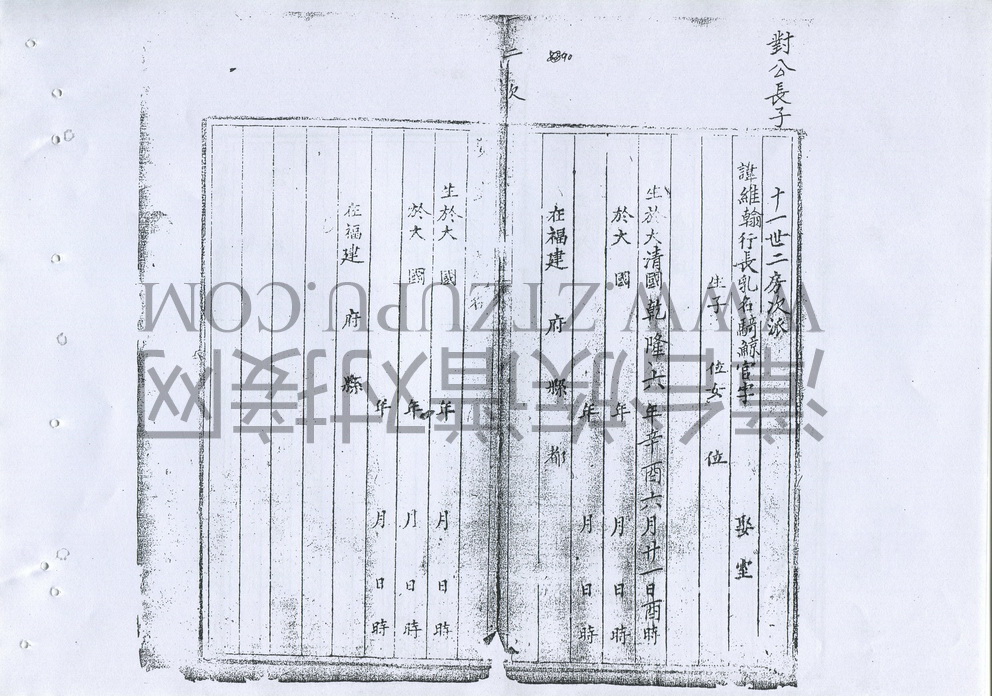 對公長子
十一世二房次派
諱維翰行長乳名騎 官字 娶 室
生子 位女 位
生於大清國乾隆六年辛酉六月廿一日酉時
於大 國 年 月 日 時
年 月 日 時
在福建 府 縣 都
二 次
8390
名
生於大 國 年 月 日 時
於大 國 年 月 日 時
年 月 日 時
在福建 府 縣
WWW.ZTZUPU.COM
漳台族谱对接网